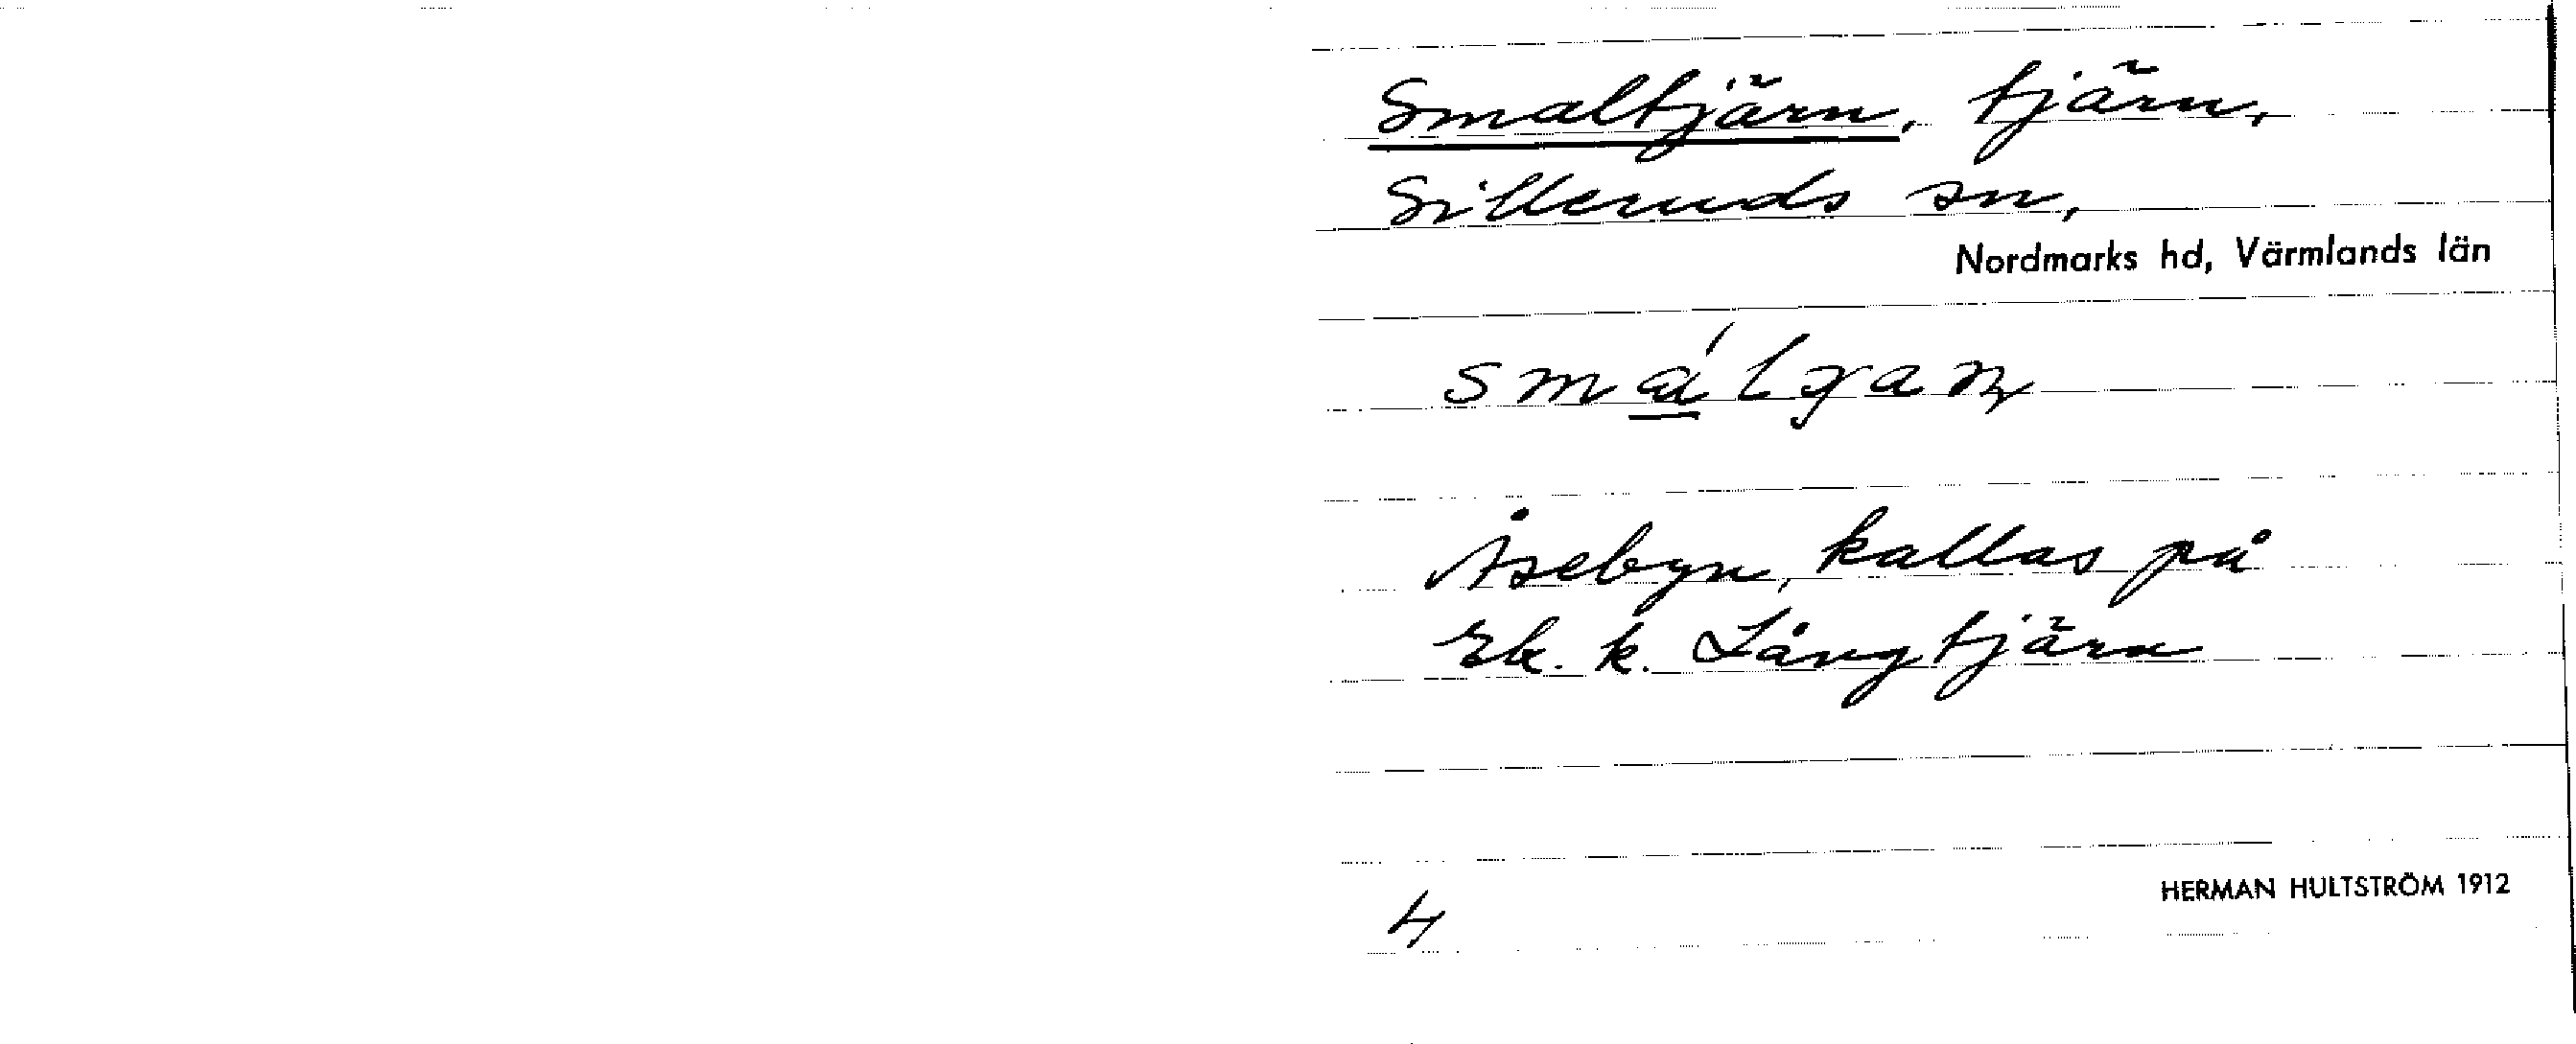 Smaltjärn, tjärn,
Silleruds sn,
Nordmarks hd, Värmlands län
Åsebyn, kallas på
Ek. k. Långtjärn
HERMAN HULTSTRÖM 1912
4